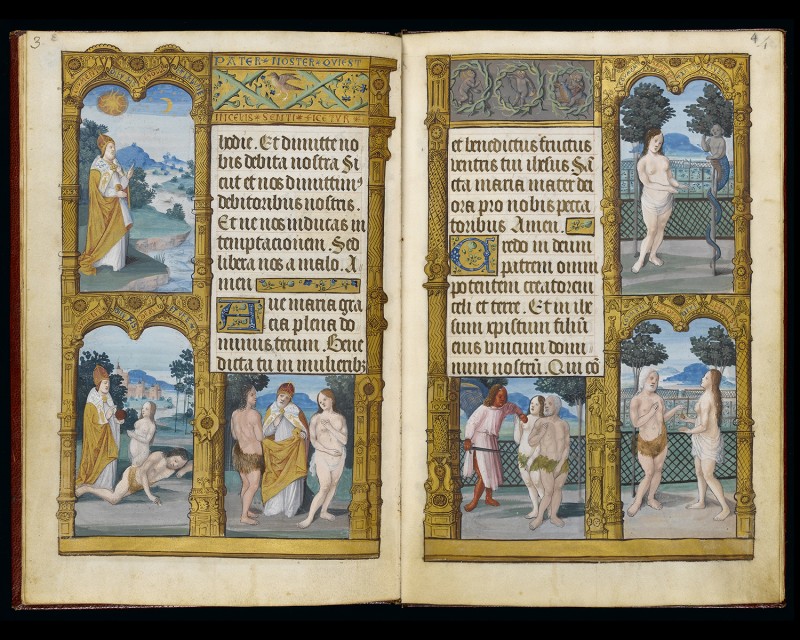 3
PATER NOSTER QVI EST
IN CELIS SENTIFICETVR
hodie. Et dimitte no
bis debita nostra Si
cut et nos dimittim9
debitoribus nostris.
Et ne nos inducas in
temptacionem. Sed
libera nos a malo. A
men
Aue maria gra
cia plena do
minus tecum. Bene
dicta tu in mulierib9
4
et benedictus fructus
ventris tui ihesus Sã
cta maria mater dei
ora pro nobis pecca
toribus Amen.
Credo in deum
patrem omni
potentem creatorem
celi et terre. Et in ihe
sum xpistum filiũ
eius vnicum domi
num nostrũ. Qui cõ